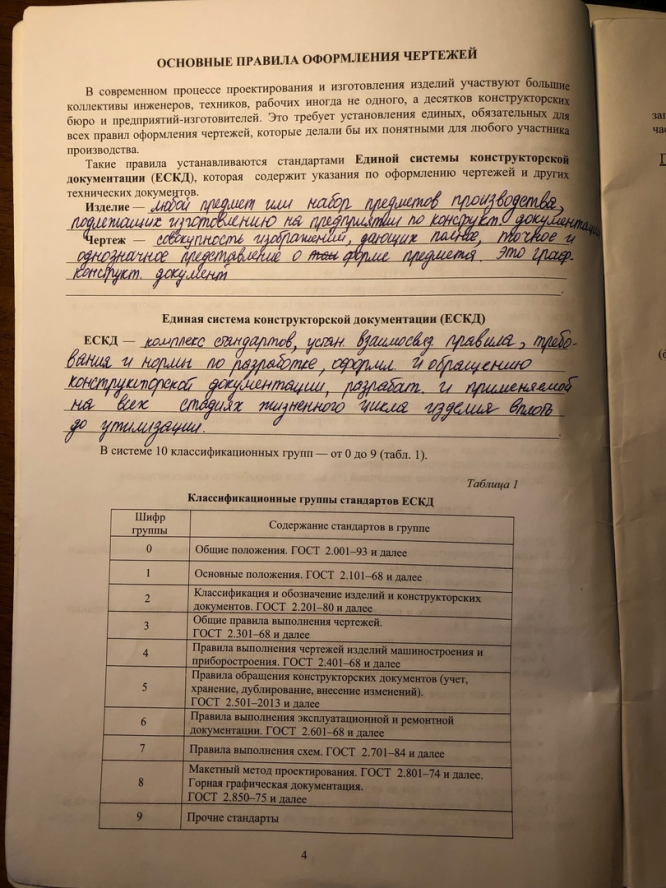 ОСНОВНЫЕ ПРАВИЛА ОФОРМЛЕНИЯ ЧЕРТЕЖЕЙ
В современном процессе проектирования и изготовления изделий участвуют большие
коллективы инженеров, техников, рабочих иногда не одного, а десятков конструкторских
бюро и предприятий-изготовителей. Это требует установления единых, обязательных для
всех правил оформления чертежей, которые делали бы их понятными для любого участника
производства.
Такие правила устанавливаются стандартами Единой системы конструкторской
документации (ЕСКД), которая содержит указания по оформлению чертежей и других
технических документов.
Изделие — любой предмет или набор предметов производства,
подлежащих изготовлению на предприятии по конструкт. документации
Чертеж — совокупность изображений, дающих полное, точное и
однозначное представление о форме предмета. Это граф.
конструкт. документ
Единая система конструкторской документации (ЕСКД)
ЕСКД — комплекс стандартов, устан. взаимосвяз. правила, требо-
вания и нормы по разработке, оформл. и обращению
конструкторской документации, разрабат. и применяемой
на всех стадиях жизненного цикла изделия вплоть
до утилизации.
В системе 10 классификационных групп — от 0 до 9 (табл. 1).
Таблица 1
Классификационные группы стандартов ЕСКД
Шифр группы Содержание стандартов в группе
0 Общие положения. ГОСТ 2.001–93 и далее
1 Основные положения. ГОСТ 2.101–68 и далее
2 Классификация и обозначение изделий и конструкторских
документов. ГОСТ 2.201–80 и далее
3 Общие правила выполнения чертежей.
ГОСТ 2.301–68 и далее
4 Правила выполнения чертежей изделий машиностроения и
приборостроения. ГОСТ 2.401–68 и далее
5 Правила обращения конструкторских документов (учет,
хранение, дублирование, внесение изменений).
ГОСТ 2.501–2013 и далее
6 Правила выполнения эксплуатационной и ремонтной
документации. ГОСТ 2.601–68 и далее
7 Правила выполнения схем. ГОСТ 2.701–84 и далее
8 Макетный метод проектирования. ГОСТ 2.801–74 и далее.
Горная графическая документация.
ГОСТ 2.850–75 и далее
9 Прочие стандарты
4